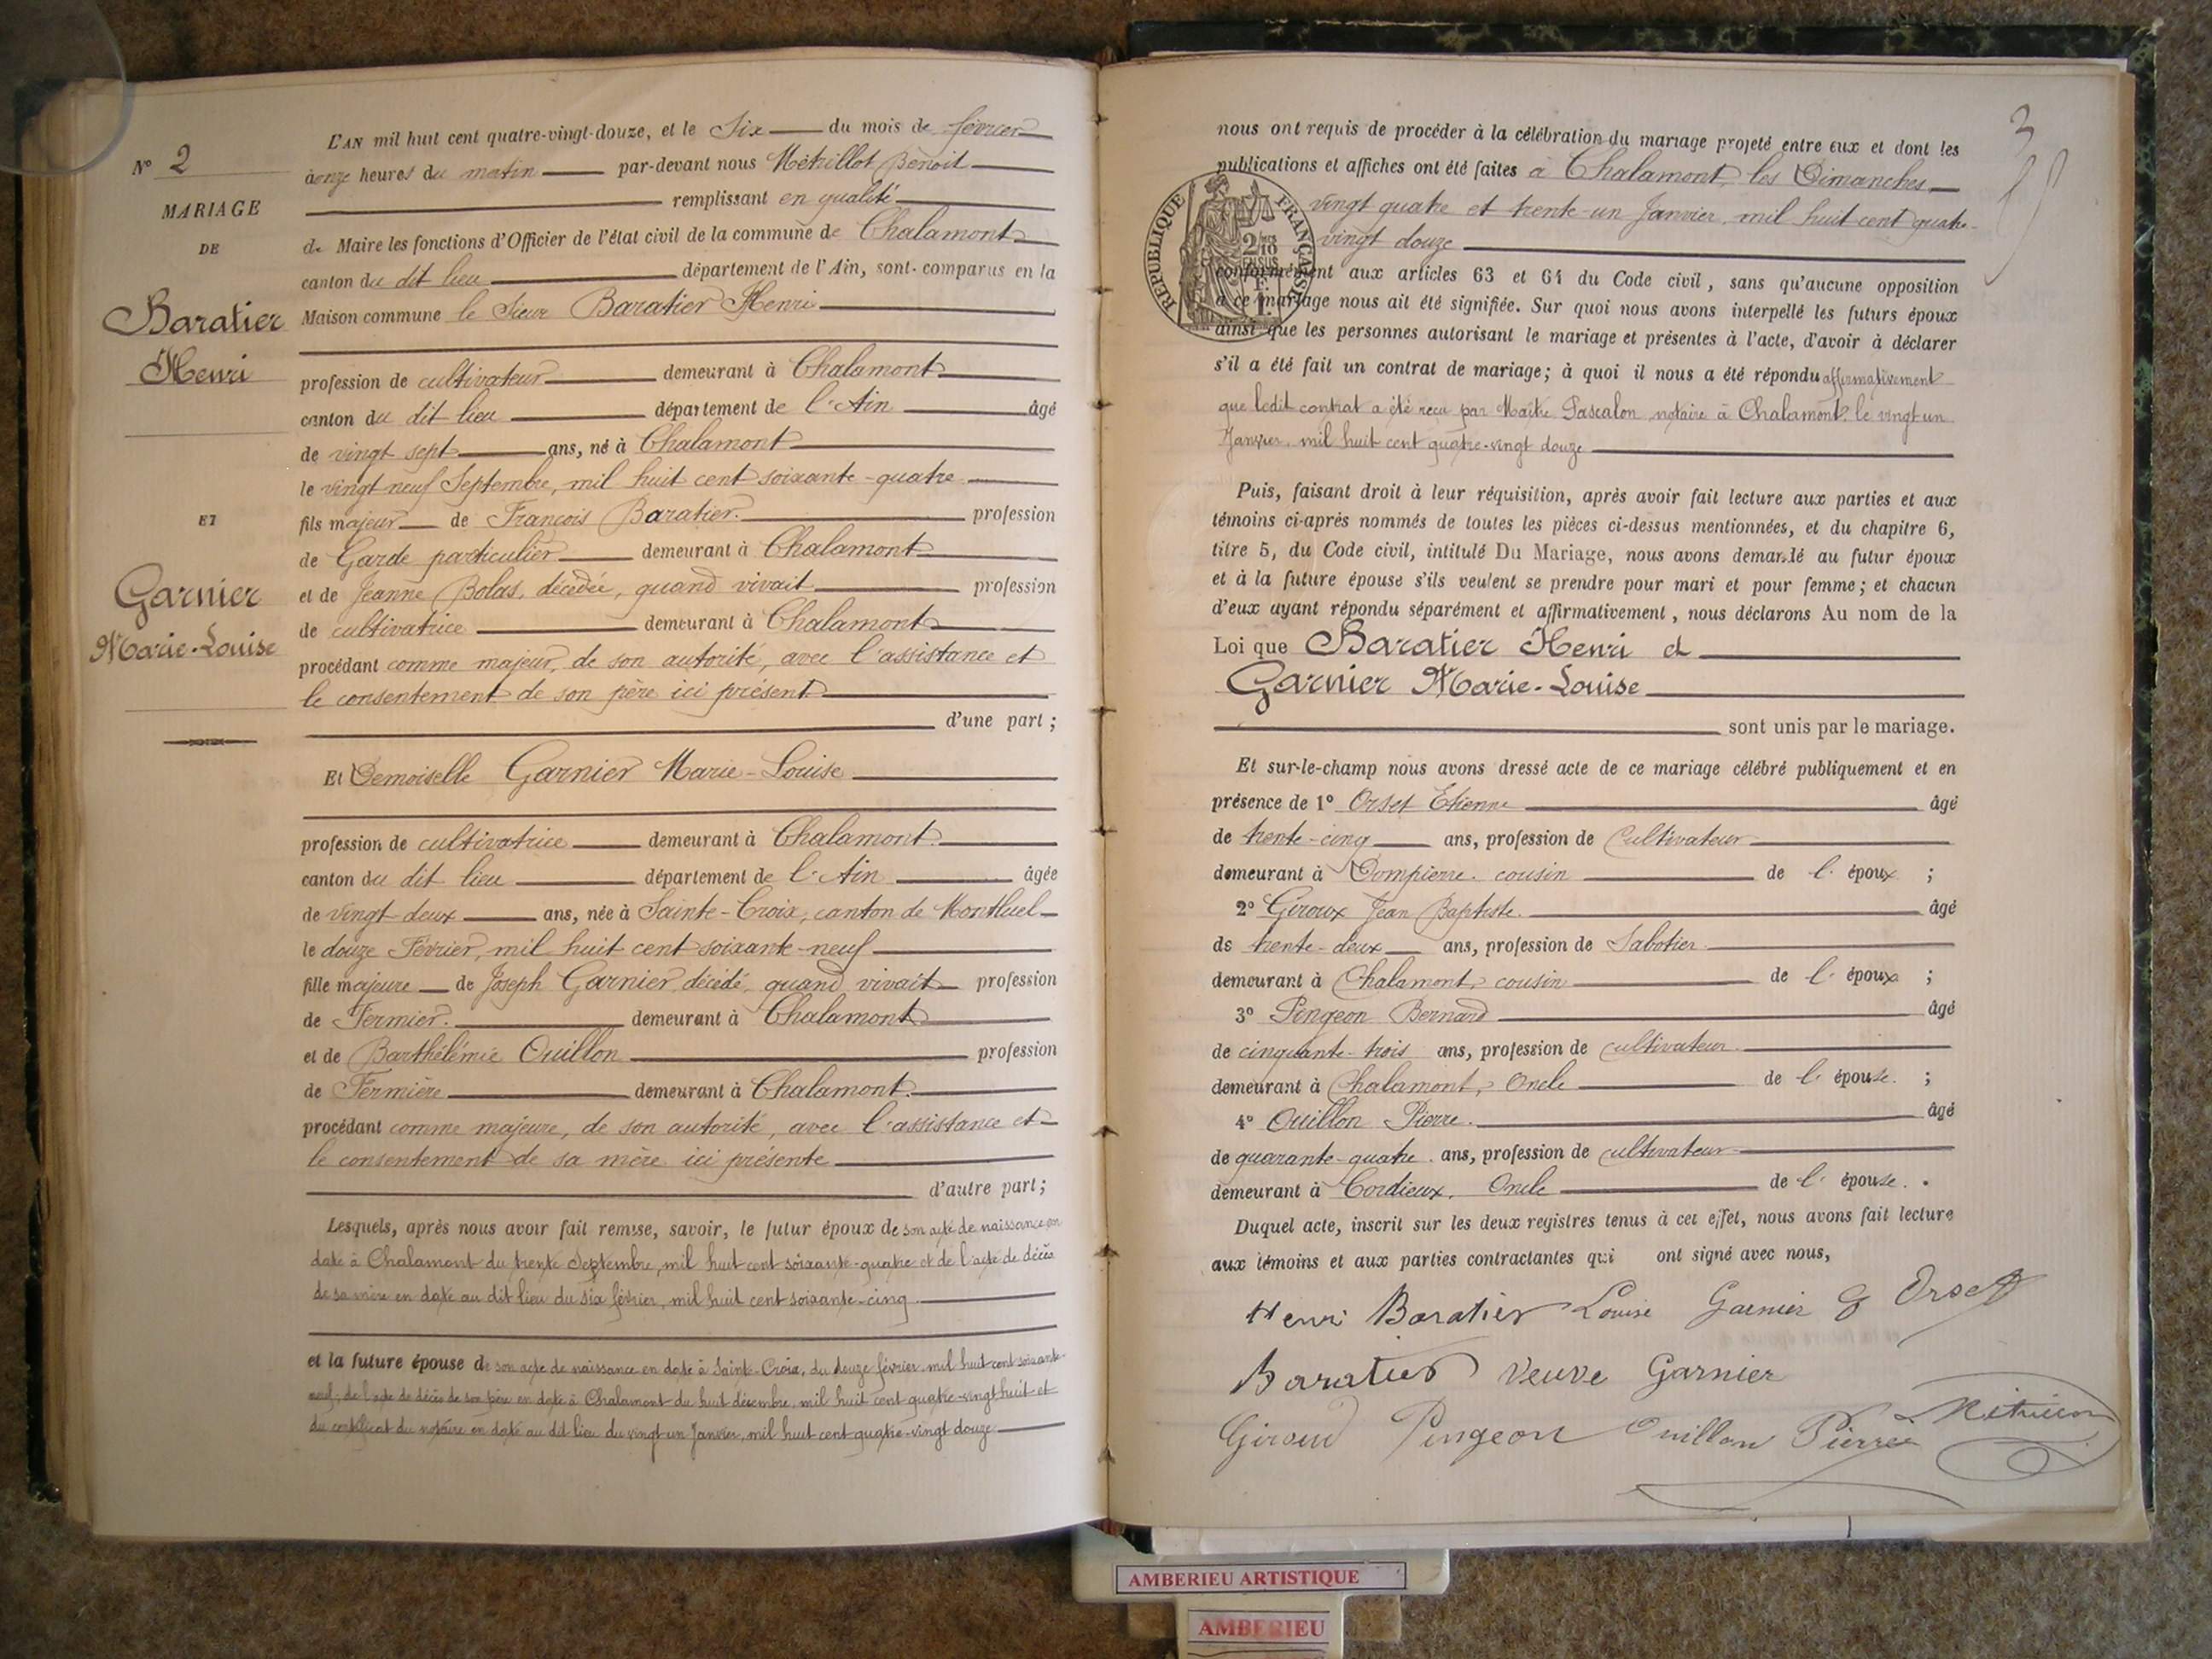 N° 2
MARIAGE
DE
Baratier
Henri
ET
Garnier
Marie-Louise
L'AN mil huit cent quatre-vingt-douze, et le Six du mois de février
à onze heures du matin par-devant nous Métrillot Benoit
remplissant en qualité
de Maire les fonctions d'Officier de l'état civil de la commune de Chalamont
canton du dit lieu département de l'Ain, sont comparus en la
Maison commune le Sieur Baratier Henri
profession de cultivateur demeurant à Chalamont
canton du dit lieu département de l'Ain âgé
de vingt sept ans, né à Chalamont
le vingt neuf Septembre, mil huit cent soixante-quatre
fils majeur de François Baratier. profession
de Garde particulier demeurant à Chalamont
et de Jeanne Bolas, décédée, quand vivait profession
de cultivatrice demeurant à Chalamont
procédant comme majeur, de son autorité, avec l'assistance et
le consentement de son père ici présent
d'une part ;
Et Demoiselle Garnier Marie-Louise
profession de cultivatrice demeurant à Chalamont.
canton du dit lieu département de l'Ain âgée
de vingt deux ans, née à Sainte-Croix, canton de Montluel
le douze Février, mil huit cent soixante-neuf
fille majeure de Joseph Garnier, décédé, quand vivait profession
de Fermier. demeurant à Chalamont
et de Barthélémie Ouillon profession
de Fermière demeurant à Chalamont.
procédant comme majeure, de son autorité, avec l'assistance et
le consentement de sa mère ici présente
d'autre part ;
Lesquels, après nous avoir fait remise, savoir, le futur époux de son acte de naissance en
date à Chalamont du trente Septembre, mil huit cent soixante-quatre et de l'acte de décès
de sa mère en date au dit lieu du six février, mil huit cent soixante-cinq
et la future épouse de son acte de naissance en date à Sainte-Croix, du douze février, mil huit cent soixante-
neuf, de l'acte de décès de son père en date à Chalamont du huit décembre, mil huit cent quatre-vingt huit et
du certificat du notaire en date au dit lieu du vingt un Janvier, mil huit cent quatre-vingt douze
3
nous ont requis de procéder à la célébration du mariage projeté entre eux et dont les
publications et affiches ont été faites à Chalamont, les Dimanches
vingt quatre et trente-un Janvier, mil huit cent quatre-
vingt douze
REPUBLIQUE FRANÇAISE
conformément aux articles 63 et 64 du Code civil, sans qu'aucune opposition
à ce mariage nous ait été signifiée. Sur quoi nous avons interpellé les futurs époux
ainsi que les personnes autorisant le mariage et présentes à l'acte, d'avoir à déclarer
s'il a été fait un contrat de mariage ; à quoi il nous a été répondu affirmativement
que ledit contrat a été reçu par Maître Pascalon, notaire à Chalamont, le vingt un
Janvier, mil huit cent quatre-vingt douze
Puis, faisant droit à leur réquisition, après avoir fait lecture aux parties et aux
témoins ci-après nommés de toutes les pièces ci-dessus mentionnées, et du chapitre 6,
titre 5, du Code civil, intitulé Du Mariage, nous avons demandé au futur époux
et à la future épouse s'ils veulent se prendre pour mari et pour femme ; et chacun
d'eux ayant répondu séparément et affirmativement, nous déclarons Au nom de la
Loi que Baratier Henri et
Garnier Marie-Louise
sont unis par le mariage.
Et sur-le-champ nous avons dressé acte de ce mariage célébré publiquement et en
présence de 1° Orset Etienne âgé
de trente-cinq ans, profession de Cultivateur
demeurant à Dompierre. cousin de l' époux ;
2° Giroux Jean Baptiste. âgé
de trente-deux ans, profession de Sabotier
demeurant à Chalamont, cousin de l' époux ;
3° Pingeon Bernard âgé
de cinquante-trois ans, profession de cultivateur
demeurant à Chalamont, Oncle de l' épouse. ;
4° Ouillon Pierre. âgé
de quarante-quatre. ans, profession de cultivateur
demeurant à Cordieux. Oncle de l' épouse. .
Duquel acte, inscrit sur les deux registres tenus à cet effet, nous avons fait lecture
aux témoins et aux parties contractantes qui ont signé avec nous,
Henri Baratier Louise Garnier Orset
Baratier veuve Garnier
Giroud Pingeon Ouillon Pierre
AMBERIEU ARTISTIQUE
AMBERIEU